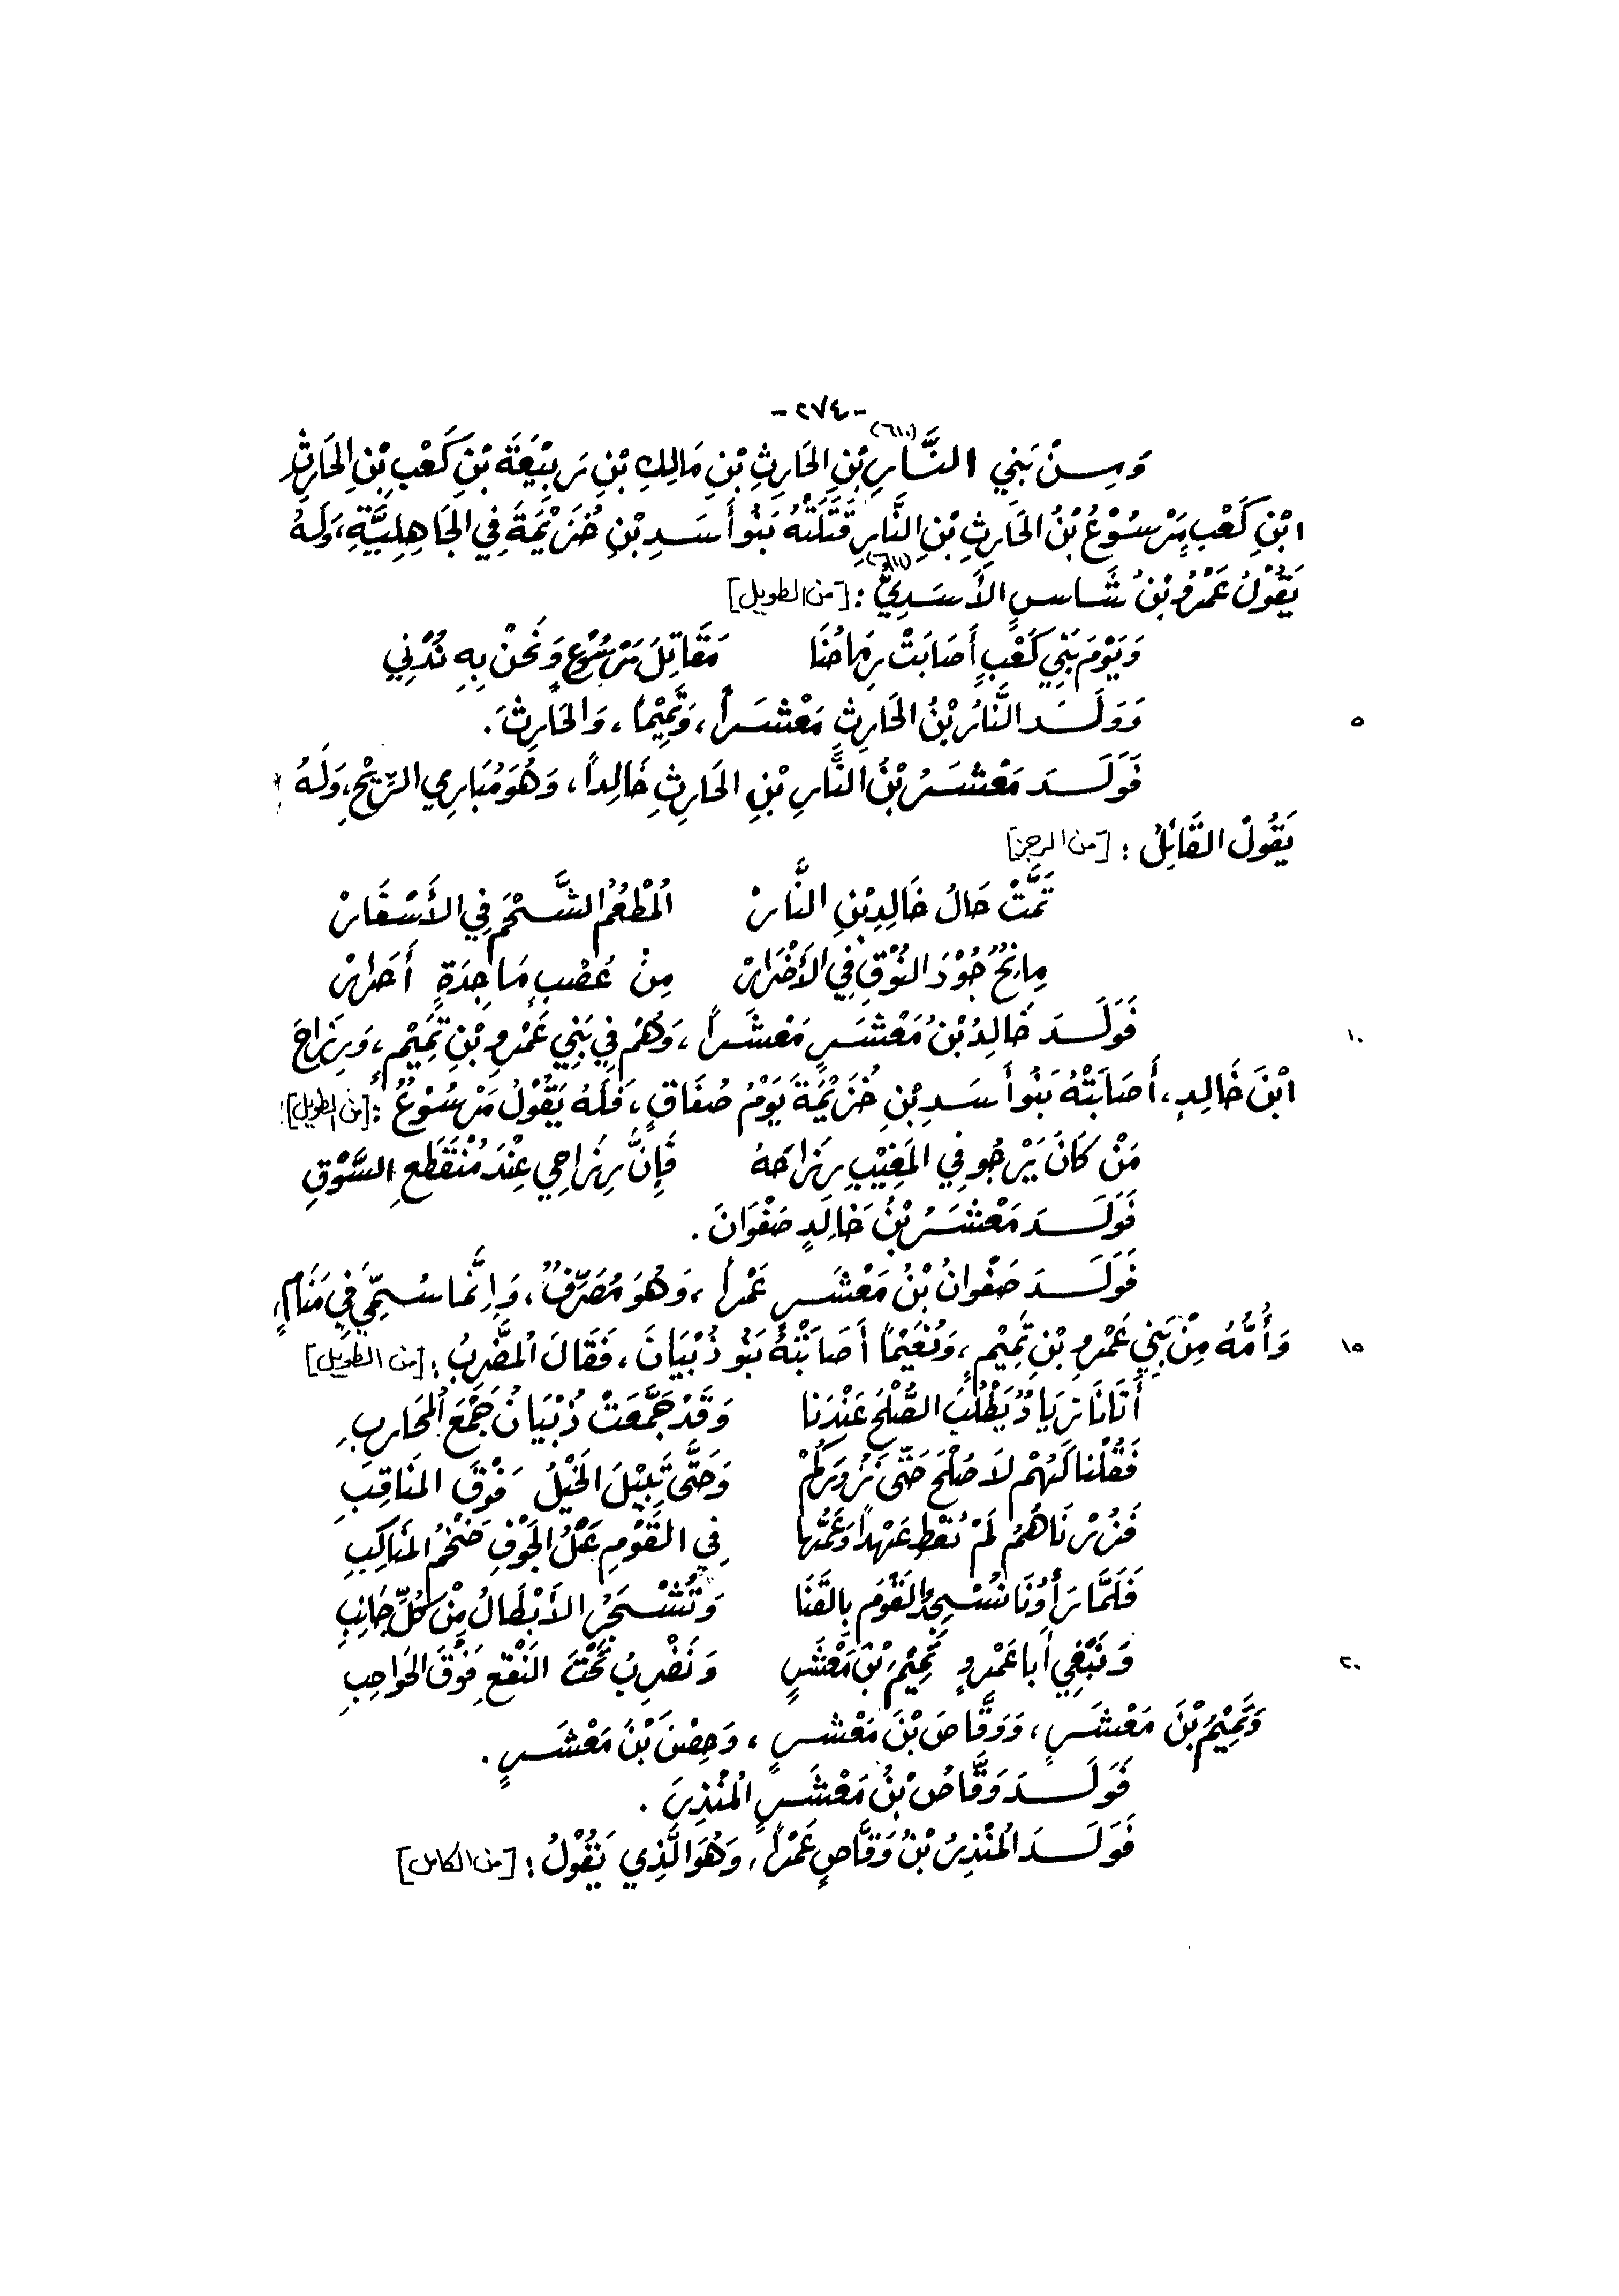 -٢٧٤-
وَمِنْ بَنِي النَّارِ(٦١٠) بْنِ الحَارِثِ بْنِ مَالِكِ بْنِ رَبِيْعَةَ بْنِ كَعْبِ بْنِ الحَارِثِ
ابْنِ كَعْبٍ مَرْسُوْعُ بْنُ الحَارِثِ بْنِ النَّارِ قَتَلَتْهُ بَنُو أَسَدِ بْنِ خُزَيْمَةَ فِي الجَاهِلِيَّةِ، وَلَهُ
يَقُوْلُ عَمْرُو بْنُ شَاسٍ الأَسَدِيُّ(٦١١) : [من الطويل]
وَيَوْمَ بَنِي كَعْبٍ أَصَابَتْ رِمَاحُنَا مَقَاتِلَ مَرْسُوْعٍ وَنَحْنُ بِهِ نُدْنِي
٥ وَوَلَدَ النَّارُ بْنُ الحَارِثِ مَعْشَراً، وَتَمِيْمًا، وَالحَارِثَ.
فَوَلَدَ مَعْشَرُ بْنُ النَّارِ بْنِ الحَارِثِ خَالِداً، وَهُوَ مُبَارِي الرِّيْحِ، وَلَهُ
يَقُوْلُ القَائِلُ : [من الرجز]
تَمَّتْ حَالُ خَالِدِ بْنِ النَّارْ المُطْعُمُ الشَّحْمَ فِي الأَسْفَارْ
مِانِحُ جُوْدَ النُوْقِ فِي الأَضْرَارْ مِنْ عُصْبٍ مَاجِدَةٍ أَحَرارْ
١٠ فَوَلَدَ خَالِدُ بْنُ مَعْشَرٍ مَعْشَراً، وَهُمْ فِي بَنِي عَمْرِو بْنِ تَمِيْمٍ، وَرِزَاحَ
ابْنَ خَالِدٍ، أَصَابَتْهُ بَنُو أَسَدِ بْنِ خُزَيْمَةَ يَوْمَ صُفَاقٍ، فَلَهُ يَقُوْلُ مَرْسُوْعُ : [من الطويل]
مَنْ كَانَ يَرْجُو فِي المَغِيْبِ رِزَاحَهُ فَإِنَّ رِزَاحِي عِنْدَ مُنْقَطَعِ السَّوْقِ
فَوَلَدَ مَعْشَرُ بْنُ خَالِدٍ صَفْوَانَ .
فَوَلَدَ صَفْوانُ بْنُ مَعْشَرٍ عَمْراً، وَهُوَ مُصَرِّفٌ، وَإِنَّمَا سُمِّيَ فِي مَنَامٍ،
١٥ وَأُمُّهُ مِنْ بَنِي عَمْرِو بْنِ تَمِيْمٍ، وَنُعَيْمًا أَصَابَتْهُ بَنُو ذُبْيَانَ، فَقَالَ المُضَّرِبُ : [من الطويل]
أَتَانَا زِيَادٌ يَطْلُبُ الصُّلْحَ عَنْدَنا وَقَدْ جَمَّعَتْ ذُبْيَانُ جَمْعَ المُحَارِبِ
فَقُلْنا لَهُمْ لاَ صُلْحَ حَتَّى نَزُورَكُمْ وَحَتَّى تَبِيْلَ الخَيْلُ فَوْقَ المَنَاقِبِ
فَزُرْنَاهُمُ لَمْ نُعْطِ عَهْدَاً وَعَمُّها فِي القَوْمِ عَبْلُ الجَوْفِ ضَخْمُ المَنَاكِبِ
فَلَمَّا رَأَوْنَا نَسْحِجُ القَوْمَ بِالقَنَا وَتُشْجَرُ الأَبْطَالُ مِنْ كُلِّ جَانِبِ
٢٠ وَنَبْغِي أَبا عَمْرٍو تَمِيْمَ بْنَ مَعْشَرٍ وَنَضْرِبُ تَحْتَ النَقْعِ فَوْقَ الحَواجِبِ
وَتَمِيْمَ بْنَ مَعْشَرٍ، وَوَقَّاصَ بْنَ مَعْشَرٍ، وَحِصْنَ بْنَ مَعْشَرٍ.
فَوَلَدَ وَقَّاصُ بْنُ مَعْشَرٍ المُنْذِرَ .
فَوَلَدَ المُنْذِرُ بْنُ وَقَّاصٍ عَمْراً، وَهُوَ الَّذِي يَقُوْلُ : [من الكامل]